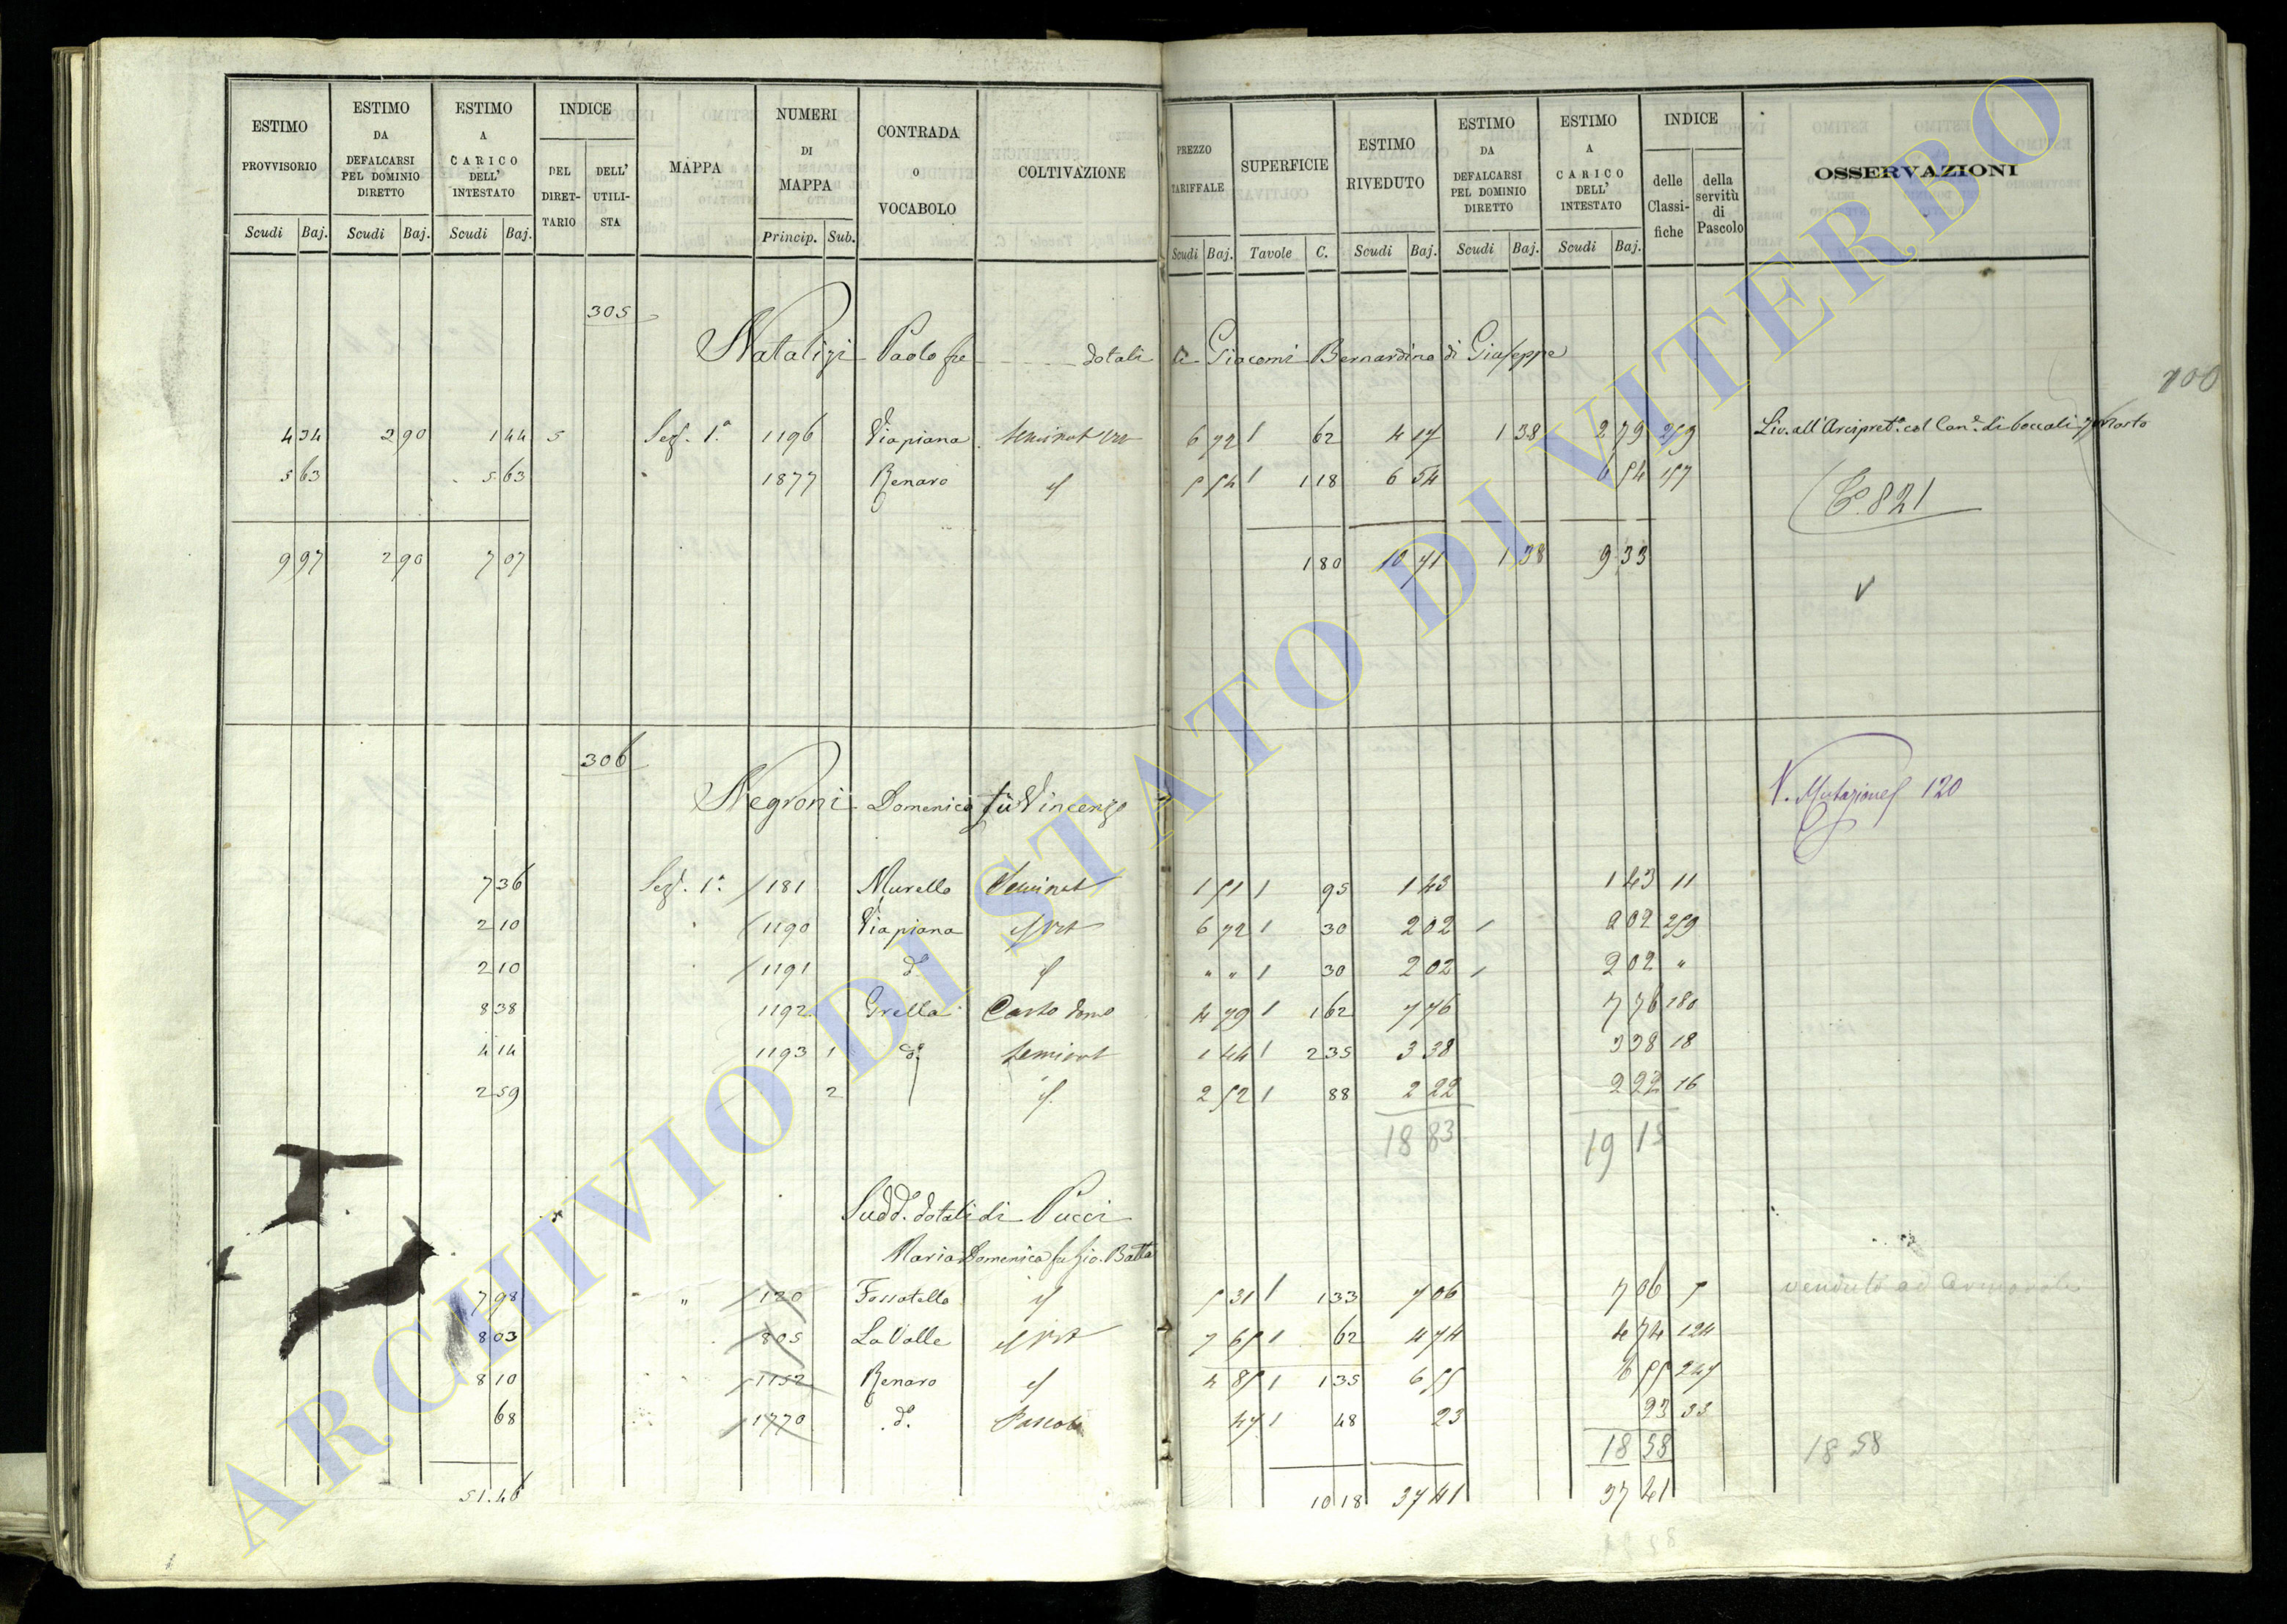 ESTIMO PROVVISORIO | ESTIMO DA DEFALCARSI PEL DOMINIO DIRETTO | ESTIMO A CARICO DELL' INTESTATO | INDICE | MAPPA | NUMERI DI MAPPA | CONTRADA O VOCABOLO | COLTIVAZIONE | PREZZO TARIFFALE | SUPERFICIE | ESTIMO RIVEDUTO | ESTIMO DA DEFALCARSI PEL DOMINIO DIRETTO | ESTIMO A CARICO DELL' INTESTATO | INDICE | OSSERVAZIONI
DEL DIRET-TARIO | DELL' UTILI-STA | delle Classi-fiche | della servitù di Pascolo
Scudi | Baj. | Scudi | Baj. | Scudi | Baj. | Princip. | Sub. | Scudi | Baj. | Tavole | C. | Scudi | Baj. | Scudi | Baj. | Scudi | Baj.
305
Nataligi Paolo fu dotali di Giacomi Bernardina di Giuseppe
100
4 34 | 2 90 | 1 44 | 5 | Sez. 1.ª | 1196 | Viapiana | Seminat Vit | 6 72 | 62 | 4 17 | 1 38 | 2 79 | 259 | Liv. all'Arcipret.
5 63 | 5 63 | 1877 | Renaro | 5 54 | 1 18 | 6 54 | 6 54 | 157
P. 821
9 97 | 2 90 | 7 07 | 1 80 | 10 71 | 1 38 | 9 33
306
Negroni Domenico fu Vincenzo
V. Mutazione 120
7 36 | Sez. 1.ª | 181 | Murello | Seminat | 1 51 | 95 | 1 43 | 1 43 | 11
2 10 | 1190 | Viapiana | Vit | 6 72 | 30 | 2 02 | 2 02 | 259
2 10 | 1191 | d.º | " " | 30 | 2 02 | 2 02 | "
8 38 | 1192 | Grella | Casto domo | 4 79 | 1 62 | 7 76 | 7 76 | 180
4 14 | 1193 | 1 | d.º | Seminat | 1 44 | 2 35 | 3 38 | 3 38 | 18
2 59 | 2 | 2 52 | 88 | 2 22 | 2 22 | 16
18 83 | 19 15
Sudd.º dotali di Pucci
Maria Domenica fu Gio. Batta
7 98 | " | 120 | Fossatello | 5 31 | 1 33 | 7 06 | 7 06 | 5 | venduto ad
8 03 | 805 | La Valle | Vit | 7 65 | 62 | 4 74 | 4 74 | 124
8 10 | 1152 | Renaro | 4 85 | 1 35 | 6 55 | 6 55 | 247
68 | 1770 | d.º | Pascolo | 47 | 48 | 23 | 23 | 33
18 58 | 18 58
51.46 | 10 18 | 37 41 | 37 41
ARCHIVIO DI STATO DI VITERBO